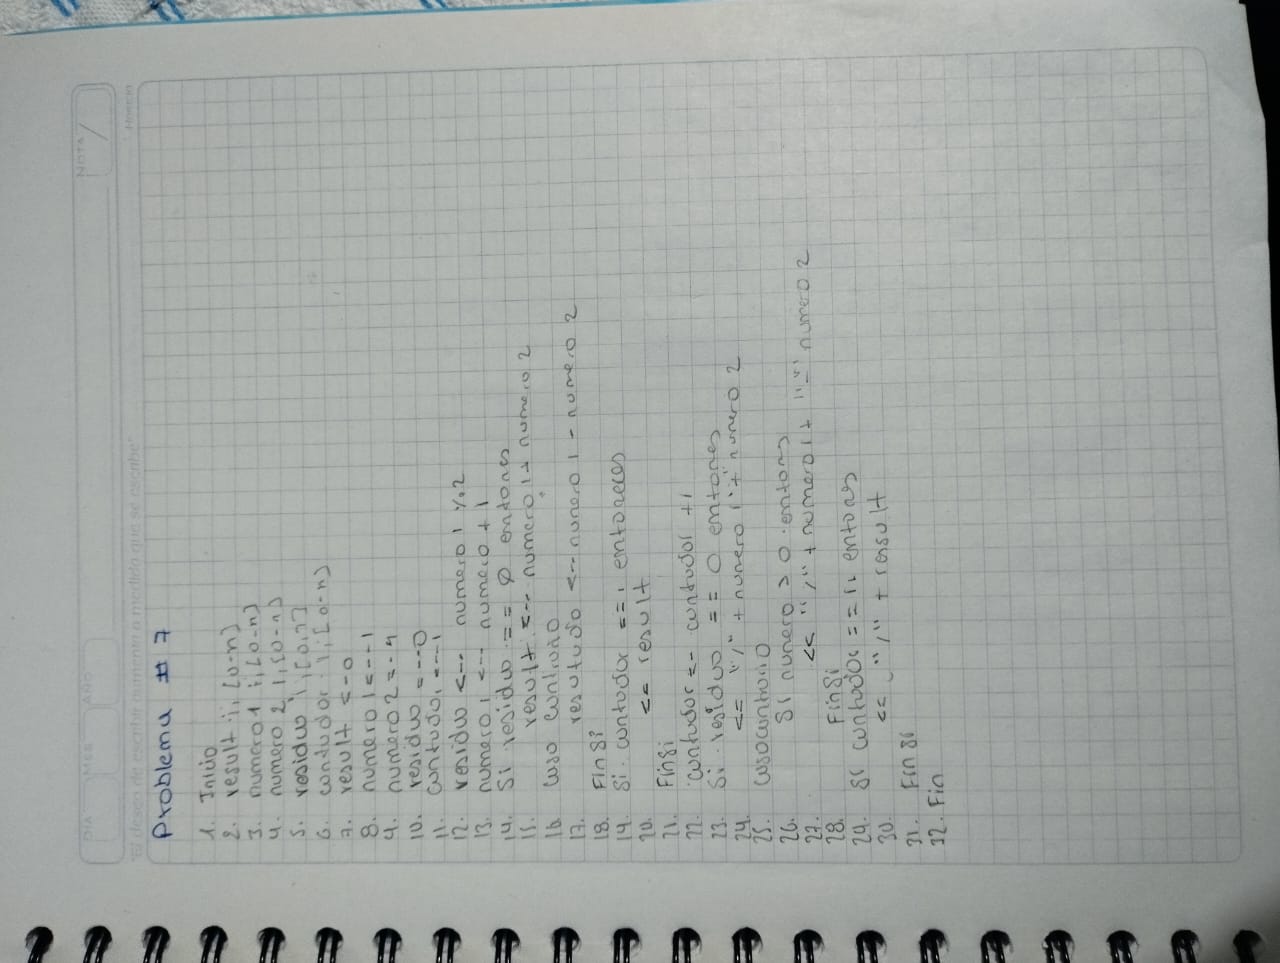 DIA
MES
AÑO
NOTA
"El deseo de escribir aumenta a medida que se escribe"
Problema # 7
1. Inicio
2. result i, [0-n]
3. numero1 i, [0-n]
4. numero 2, i, [0-n]
5. residuo i, [0,n]
6. contador i, [0-n]
7. result <-- 0
8. numero1 <--- 1
9. numero2 <-- 4
10. residuo <--- 0
11. contador <--- 1
12. residuo <--- numero1 %2
13. numero1 <--- numero + 1
14. Si residuo == 0 entonces
15. result <--- numero1 + numero2
16. Caso contrario
17. resutado <--- numero1 - numero2
18. Fin si
19. Si contador == 1 entonces
20. << result
21. Finsi
22. contador <-- contador +1
23. Si residuo == 0 entonces
24. << "," + numero1 "+" numero2
25. Caso contrario
26. Si numero > 0 entonces
27. << "," + numero1 + "-" numero2
28. Finsi
29. Si contador == 11 entonces
30. << "," + result
31. Fin si
32. Fin